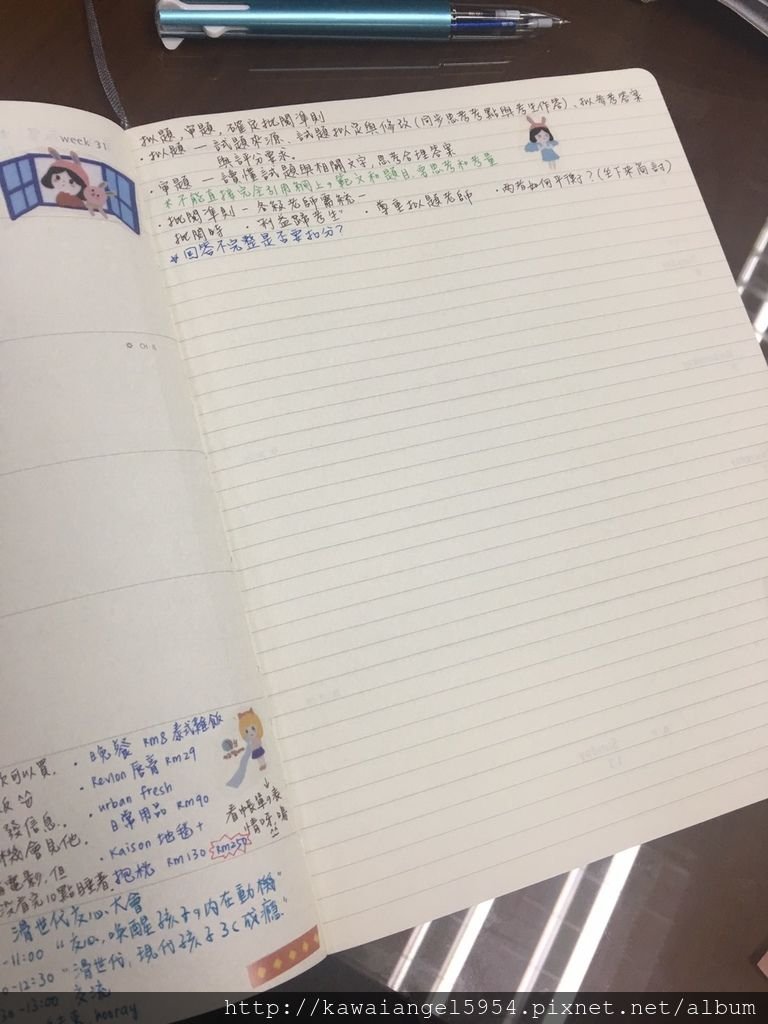 week 31
拟題,審題,確定批閱準則
·拟題 — 試題來源、試題拟定與修改(同步思考考點與考生作答)、拟參考答案
與評分要求。
·審題 — 讀懂試題與相關文字,思考合理答案
*不能直接完全引用網上の範文和題目,需思考和考量
·批閱準則 - 各級老師需統一
批閱時 ·"利益歸考生" ·尊重拟題老師 ·兩者如何平衡?(坐下來商討)
*回答不完整是否要扣分?
次可以買.
發信息.
機會見他.
電影,但
沒看完10點睡著.
·晚餐 RM8 泰式雞飯
·Revlon 唇膏 RM29
·urban fresh
日常用品 RM90
·Kaison 地毯+
抱枕 RM130 RM250
看帳單の表
情呀,嘻
滑世代友心大會
-11:00 "友心,喚醒孩子の內在動機"
-12:30 "滑世代,現代孩子3C成癮"
-13:00 交流
hooray
http://kawaiangel5954.pixnet.net/album